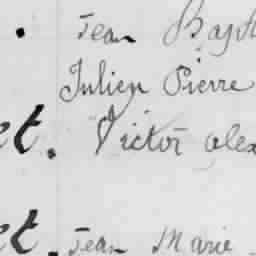 . Jean Bapt
Julien Pierre
et. Victor alex
et. Jean Marie